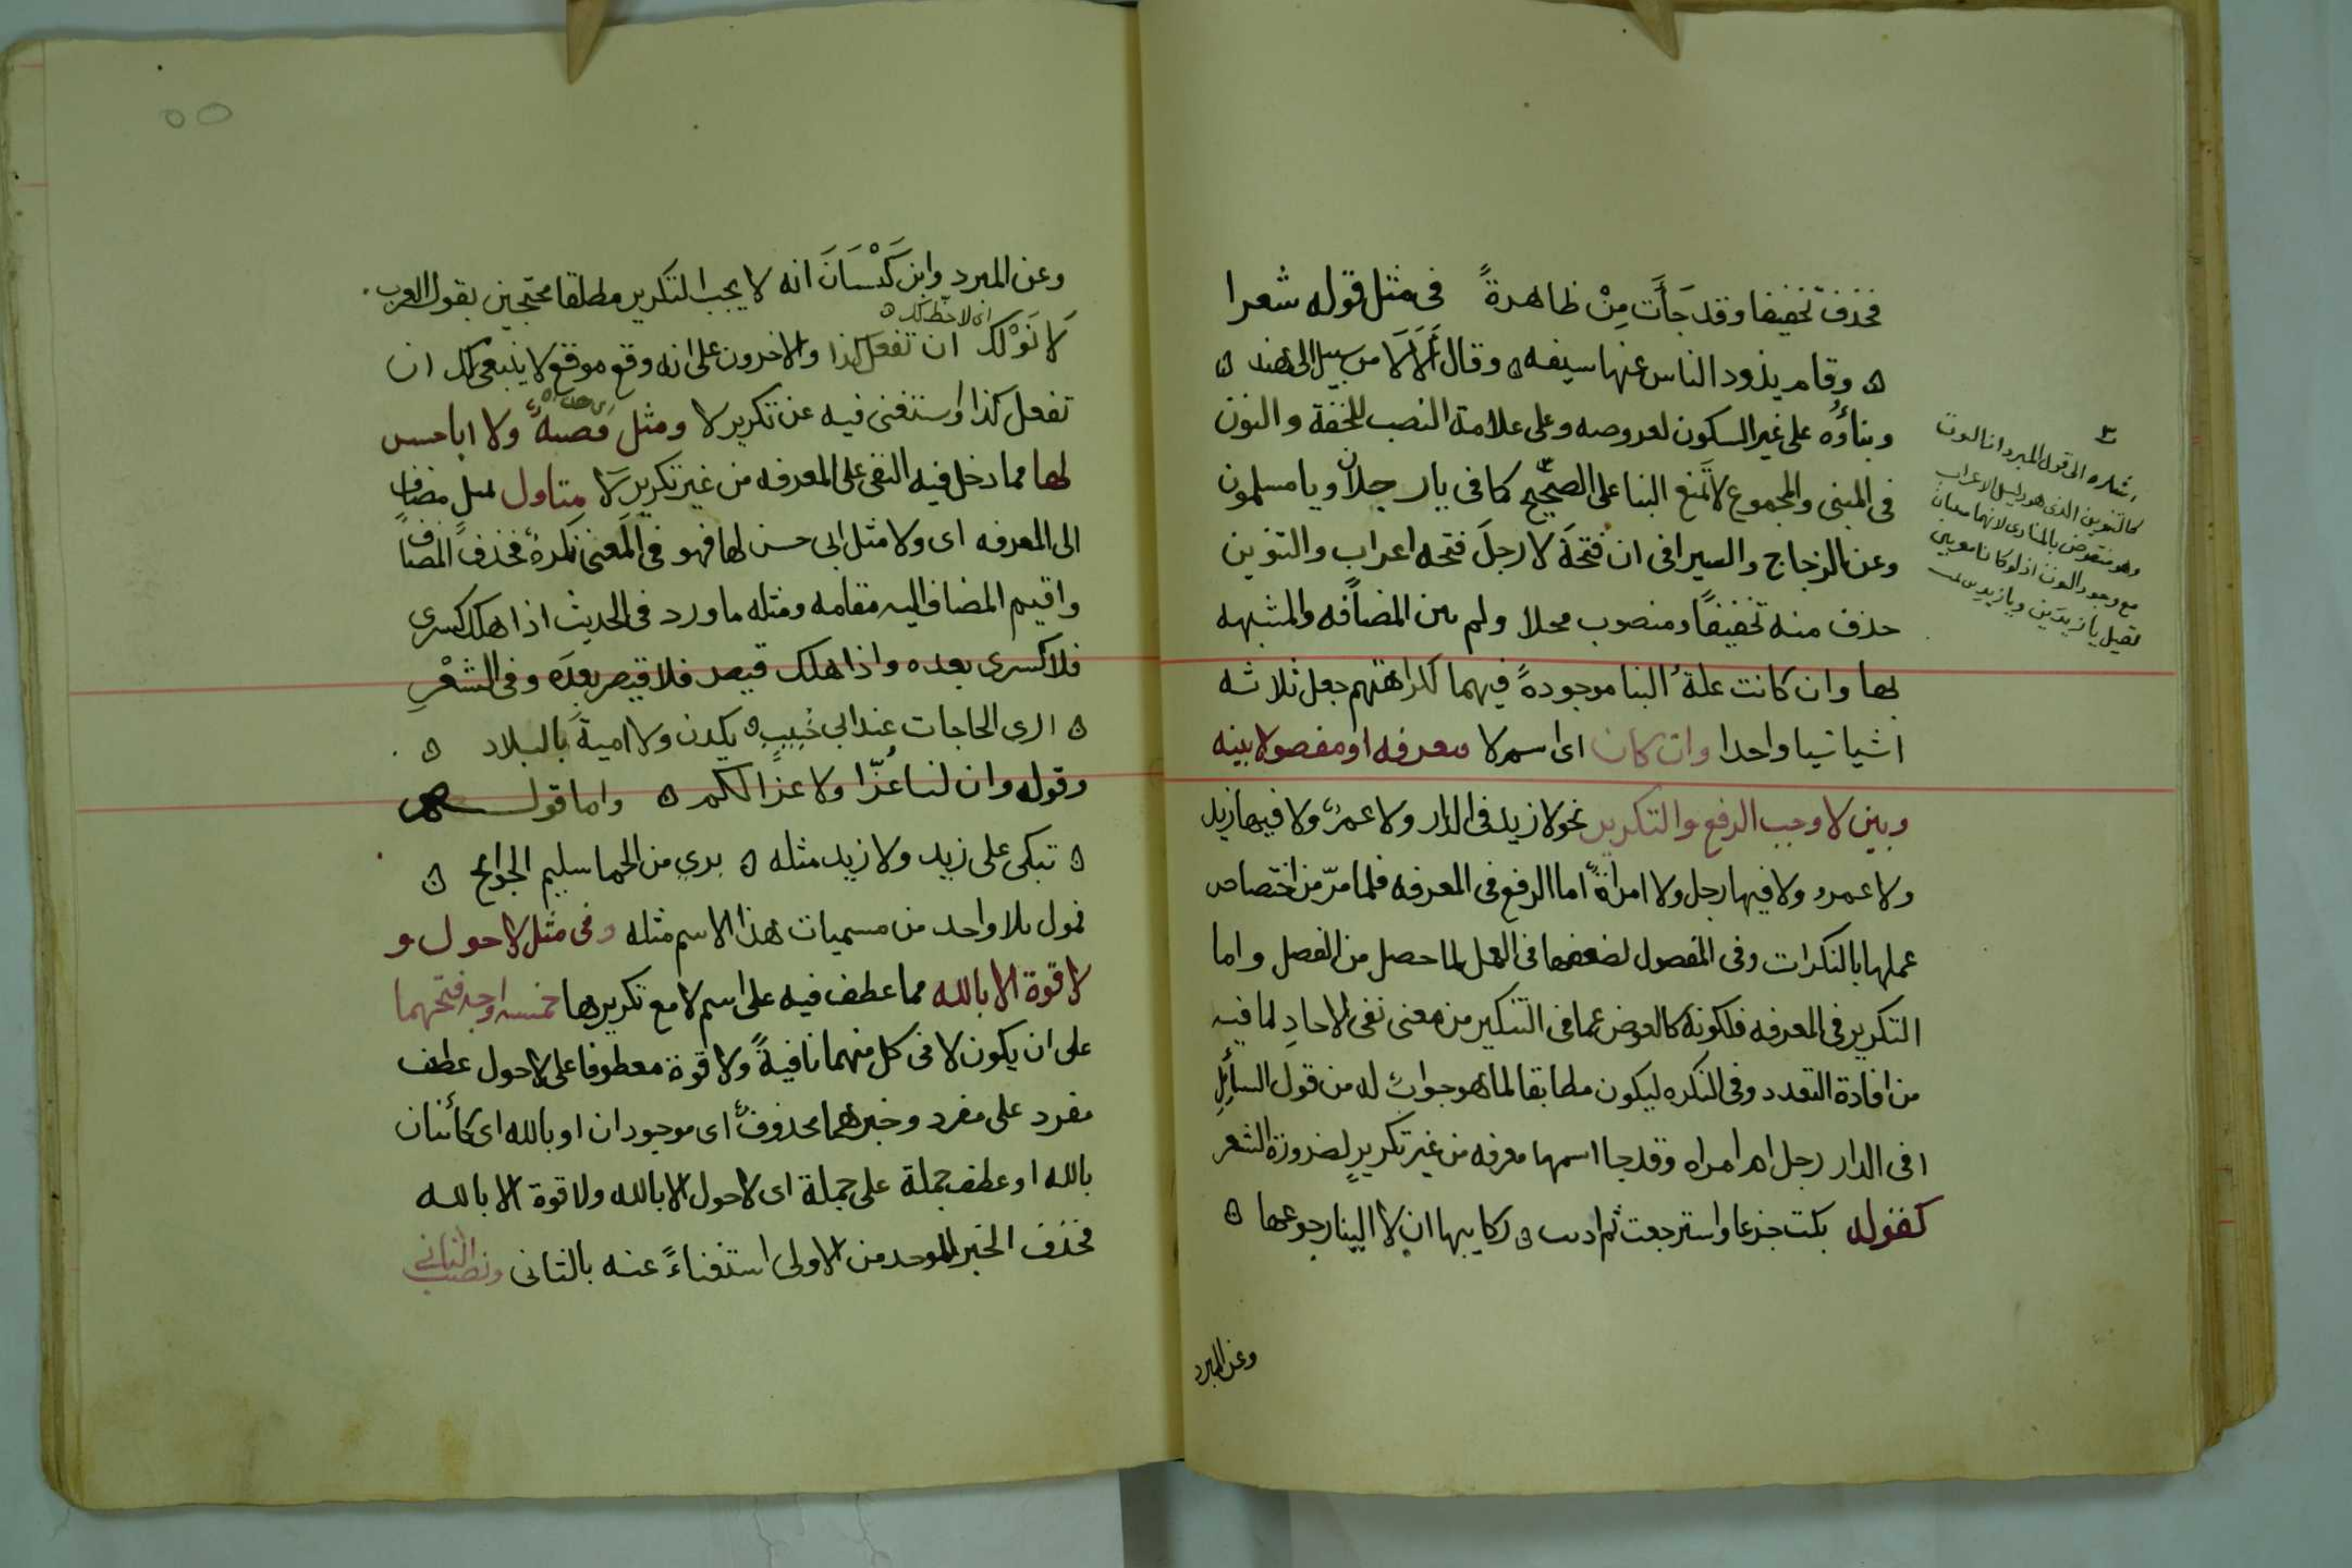 فحذف تخفيفا وقد جأت مِنْ ظاهرةً في مثل قوله شعرا
ه وقام يذود الناس عنها سيفه ه وقال أَلاَ لاَ من سبيل الى هند ه
وبناؤُه على غير السكون لعروضه وعلى علامة النصب للخفة والنون
في المبنى والمجموع لا تمنع البنا على الصحيح كما في يا رجلان ويا مسلمون
وعن الزجاج والسيرافى ان فتحةَ لا رجلَ فتحه اعراب والتنوين
حذف منه تخفيفاً ومنصوب محلا ولم يبن المضافه والمشبهه
بها وان كانت علةُ البنا موجودةً فيهما لكراهتهم جعل ثلاثه
اشيا شيا واحدا وان كان اى اسم لا معرفه او مفصولا بينه
وبين لا وجب الرفع والتكرير نحو لا زيد فى الدار ولا عمرٌو ولا فيها زيد
ولا عمرو ولا فيها رجل ولا امرأةٌ اما الرفع فى المعرفه فلما مرّ من اختصاص
عملها بالنكرات وفى المفصول لضعفها فى العمل لما حصل من الفصل واما
التكرير فى المعرفه فلكونه كالعوض عما فى التنكير من معنى نفى الاحادِ لما فيه
من افادة التعدد وفى النكره ليكون مطابقا لما هو جوابٌ له من قول السائِلِ
افى الدار رجل ام امراه وقد جا اسمها معرفه من غير تكريرٍ لضرورة الشعر
كقوله بكت جزعا واسترجعت ثم اذنت ه ركايبها ان لا الينا رجوعها ه
وعن المبرد
اشاره الى قول المبرد ان النون
كالتنوين الذى هو دليل الاعراب
وهو منقوض بالمنادى لانهما مبنيان
مع وجود النون اذ لو كانا معربين
لقيل يا زيدَين ويا زيدِين
٥٥
وعن المبرد وابن كَيْسَانَ انه لا يجب التكرير مطلقا محتجين بقول العرب
لاَ نَوْلُكَ ان تفعل كذا والاخرون على انه وقع موقع لا ينبغى لك ان
تفعل كذا واستغنى فيه عن تكرير لا ومثل قضيةٌ ولا ابا حسن
لها مما دخل فيه النفى على المعرفه من غير تكرير لَا متاول بمثل مضافٍ
الى المعرفه اى ولا مثل ابى حسن لها فهو فى المعنى نكرةٌ فحذف المضاف
واقيم المضاف اليه مقامه ومثله ما ورد فى الحديث اذا هلك كسرى
فلا كسرى بعده واذا هلك قيصر فلا قيصر بعده وفى الشعْرِ
ه ارى الحاجات عند ابى خُبيبٍ ه يكدن ولا اميةَ بالبلاد ه
وقوله وان لنا عُزّا ولا عزا لكم ه واما قول
ه تبكى على زيد ولا زيد مثله ه برى من الحما سليم الجوانح ه
فمول بلا واحد من مسميات هذا الاسم مثله وفى مثل لا حول و
لا قوة الا بالله مما عطف فيه على اسم لا مع تكريرها خمسه اوجه فتحهما
على ان يكون لا فى كل منهما نافيةً ولا قوة معطوفا على لا حول عطف
مفرد على مفرد وخبرهما محذوفٌ اى موجودان او بالله اى كائنان
بالله او عطف جملة على جملة اى لا حول الا بالله ولا قوة الا بالله
فحذف الخبر للموحد من الاولى استغناءً عنه بالثانى ونصب الثانى